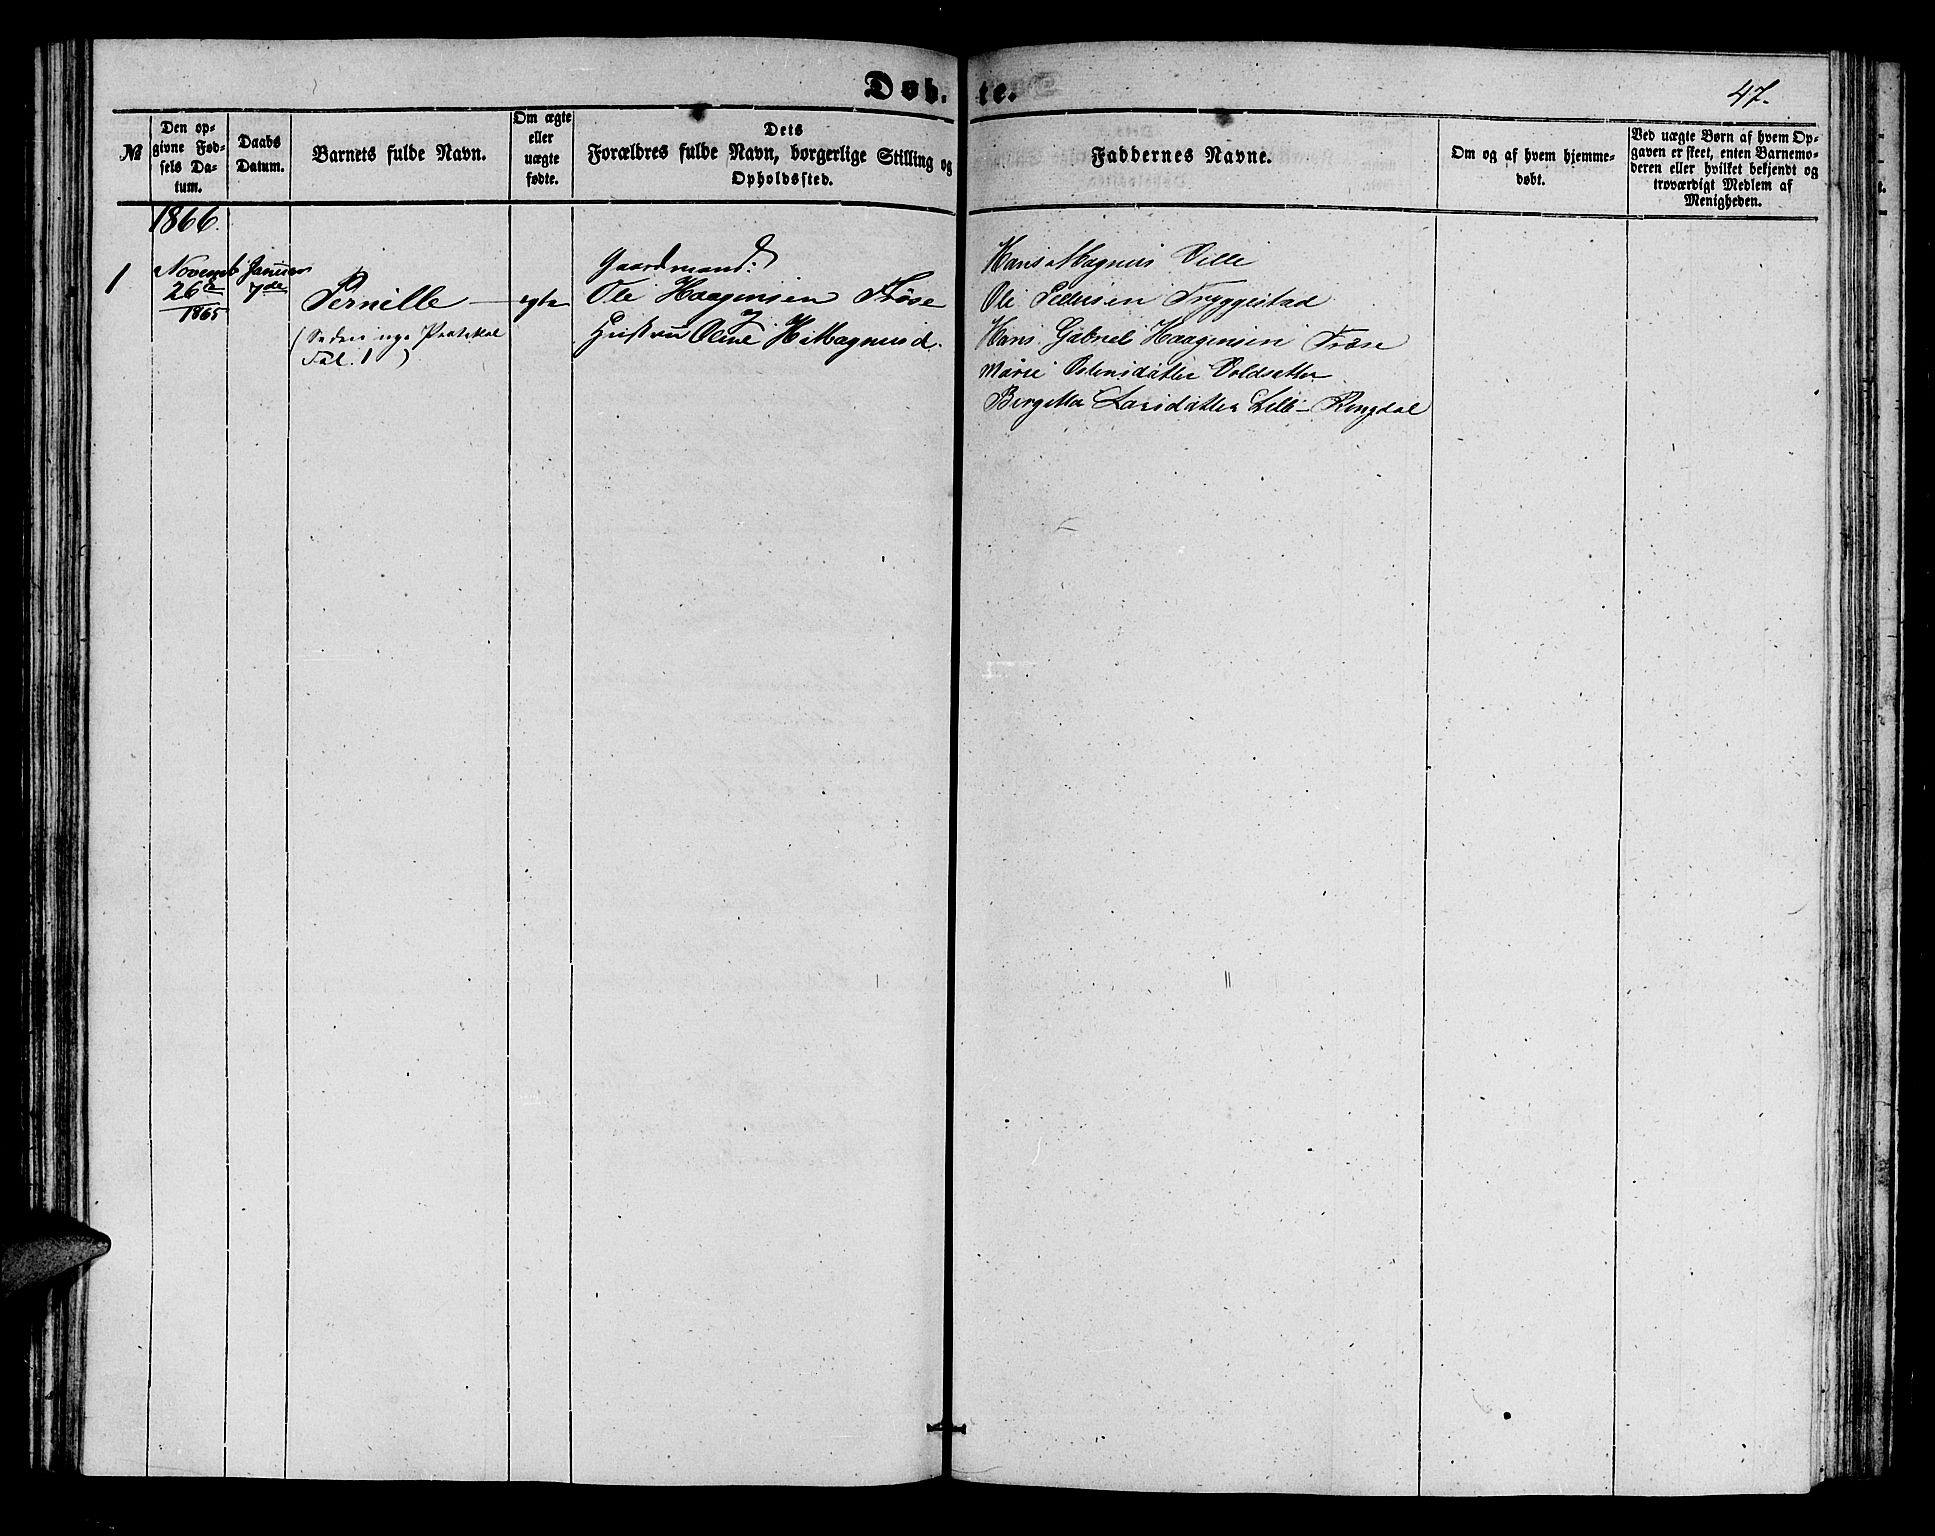 Døb-
te.
47.
№
Den op-
givne Fød-
sels Da-
tum.
Daabs
Datum.
Barnets fulde Navn.
Om ægte
eller
uægte
fødte.
Dets
Forældres fulde Navn, borgerlige Stilling og
Opholdssted.
Faddernes Navne.
Om og af hvem hjemme-
døbt.
Ved uægte Børn af hvem Op-
gaven er skeet, enten Barnemo-
deren eller hvilket bekjendt og
troværdigt Medlem af
Menigheden.
1866.
1
Novemb
26de
1865
Januar
7de
Pernille
(Se den nye Protokol
Fol. 1)
egte
Gaardmand:
Ole Haagensen Frøse
Hustru Oline H. Magnusd.
Hans Magnus Velle
Ole Pettersen Tryggestad
Hans Gabriel Haagensen Frøse
Marie Ostensdatter Voldsetter
Birgitta Larsdatter Lille-Ringdal